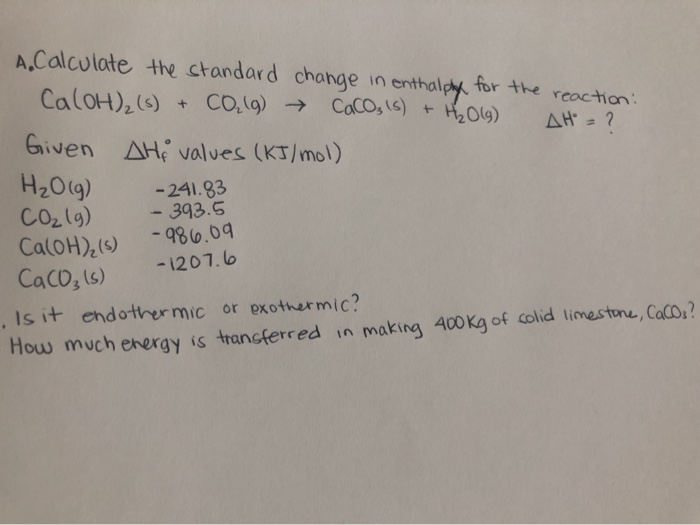 A. Calculate the standard change in enthalpy for the reaction:
Ca(OH)₂(s) + CO₂(g) → CaCO₃(s) + H₂O(g) ΔH° = ?
Given ΔHf° values (KJ/mol)
H₂O(g) -241.83
CO₂(g) -393.5
Ca(OH)₂(s) -986.09
CaCO₃(s) -1207.6
. Is it endothermic or exothermic?
How much energy is transferred in making 400Kg of solid limestone, CaCO₃?